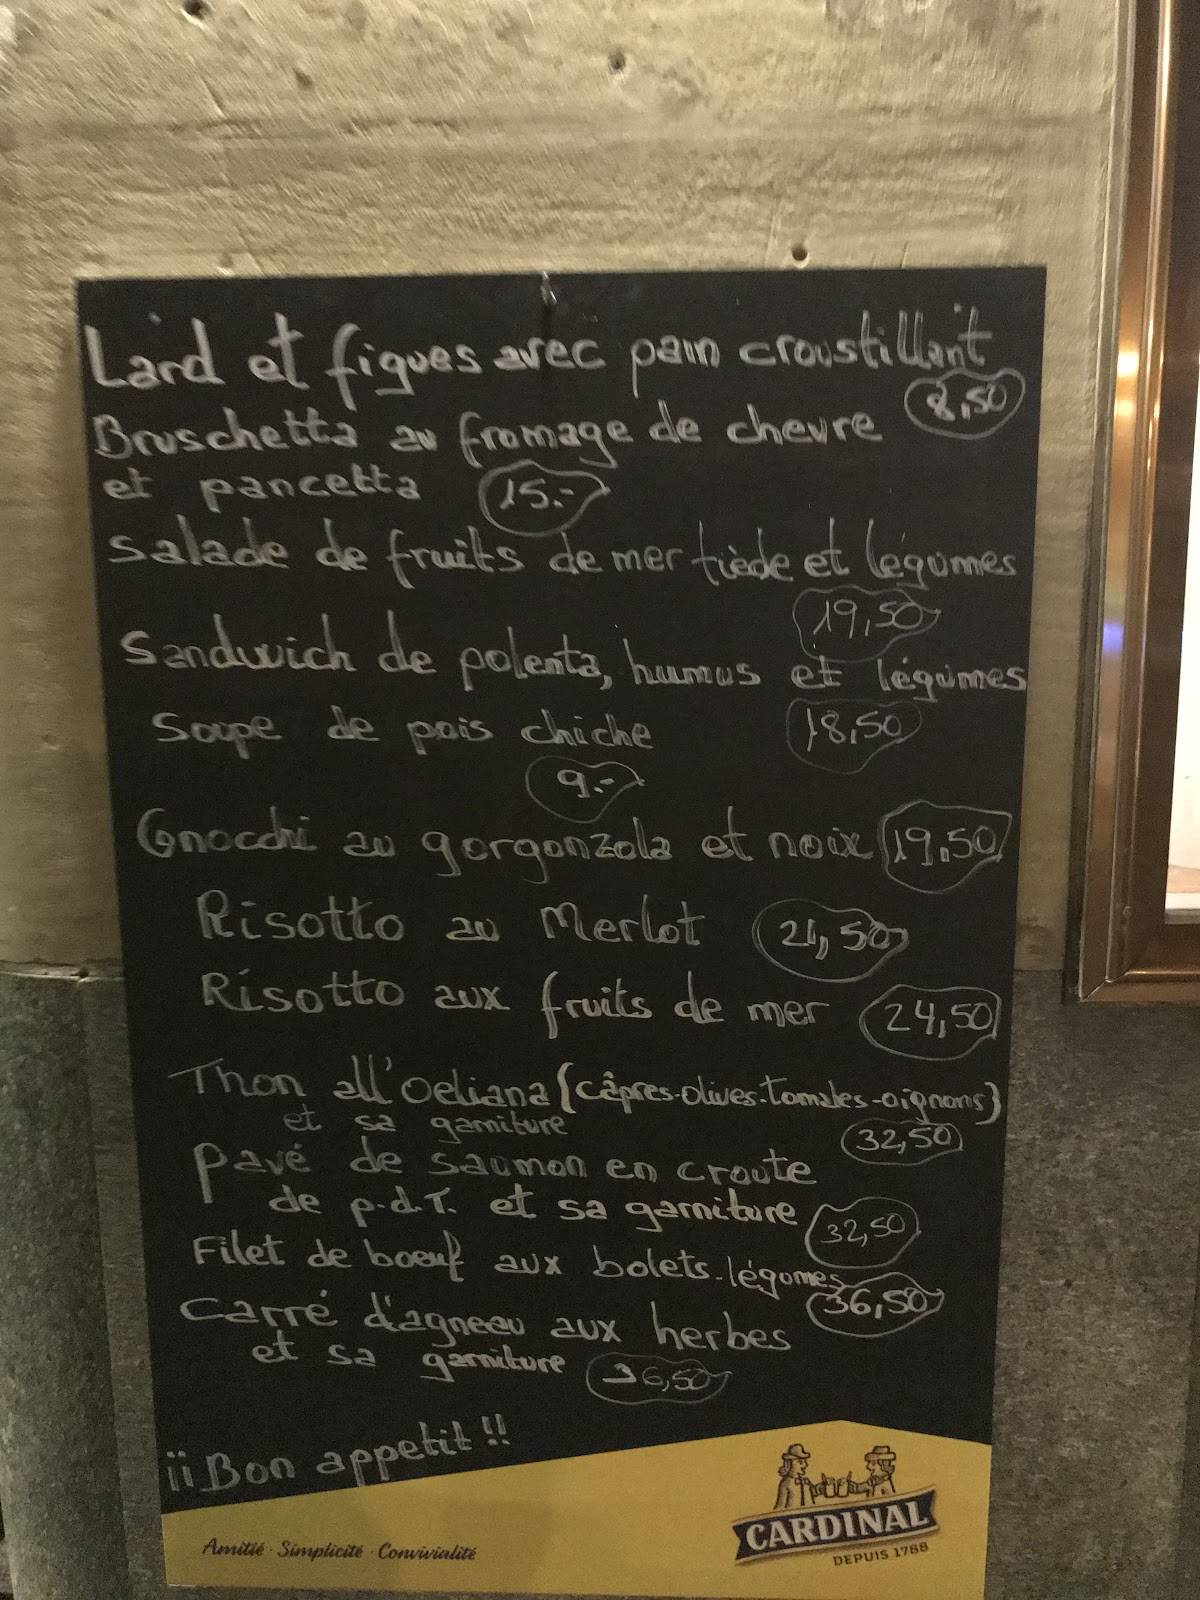 Lard et figues avec pain croustillant
8,50
Bruschetta au fromage de chevre
et pancetta 15.-
Salade de fruits de mer tiède et légumes
19,50
Sandwich de polenta, humus et légumes
18,50
Soupe de pois chiche
9.-
Gnocchi au gorgonzola et noix 19,50
Risotto au Merlot 21,50
Risotto aux fruits de mer 24,50
Thon all'Oeliana (câpres-olives-tomates-oignons)
et sa garniture 32,50
Pavé de saumon en croute
de p.d.T. et sa garniture 32,50
Filet de boeuf aux bolets-légumes
36,50
Carré d'agneau aux herbes
et sa garniture 36,50
¡¡Bon appetit!!
Amitié · Simplicité · Convivialité
CARDINAL
DEPUIS 1788